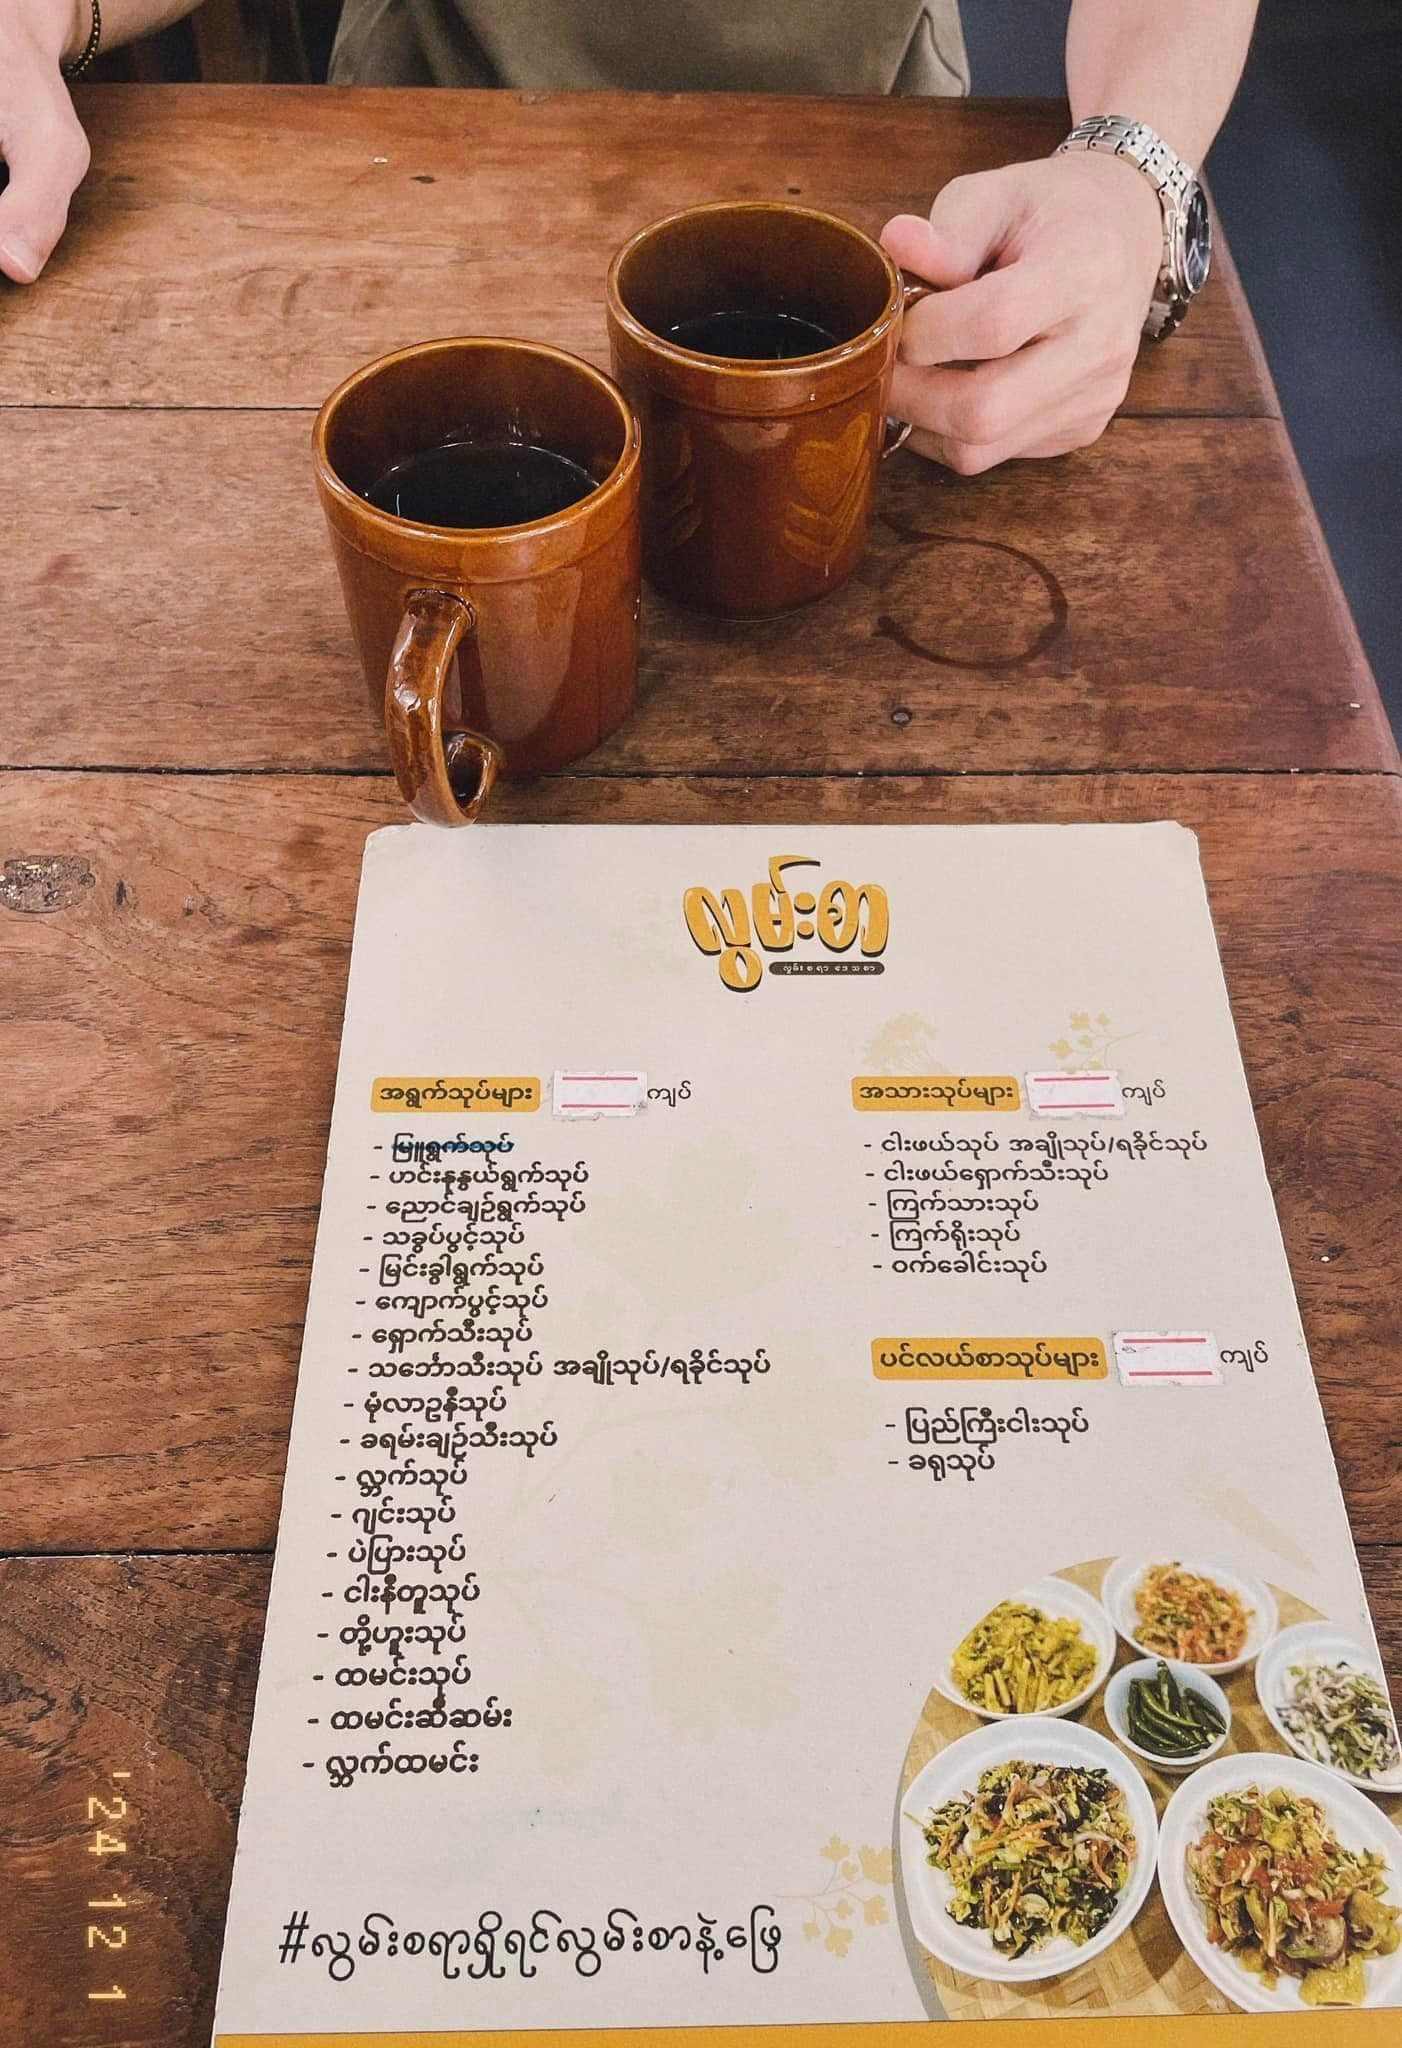 လွမ်းစာ
လွမ်းစရာ ဒေသစာ
အရွက်သုပ်များ ကျပ်
- မြူရွက်သုပ်
- ဟင်းနုနွယ်ရွက်သုပ်
- ညောင်ချဉ်ရွက်သုပ်
- သခွပ်ပွင့်သုပ်
- မြင်းခွါရွက်သုပ်
- ကျောက်ပွင့်သုပ်
- ရှောက်သီးသုပ်
- သင်္ဘောသီးသုပ် အချိုသုပ်/ရခိုင်သုပ်
- မုံလာဥနီသုပ်
- ခရမ်းချဉ်သီးသုပ်
- လ္ဘက်သုပ်
- ဂျင်းသုပ်
- ပဲပြားသုပ်
- ငါးနီတူသုပ်
- တို့ဟူးသုပ်
- ထမင်းသုပ်
- ထမင်းဆီဆမ်း
- လ္ဘက်ထမင်း
အသားသုပ်များ ကျပ်
- ငါးဖယ်သုပ် အချိုသုပ်/ရခိုင်သုပ်
- ငါးဖယ်ရှောက်သီးသုပ်
- ကြက်သားသုပ်
- ကြက်ရိုးသုပ်
- ဝက်ခေါင်းသုပ်
ပင်လယ်စာသုပ်များ ကျပ်
- ပြည်ကြီးငါးသုပ်
- ခရုသုပ်
#လွမ်းစရာရှိရင်လွမ်းစာနဲ့ဖြေ
'24 12 1